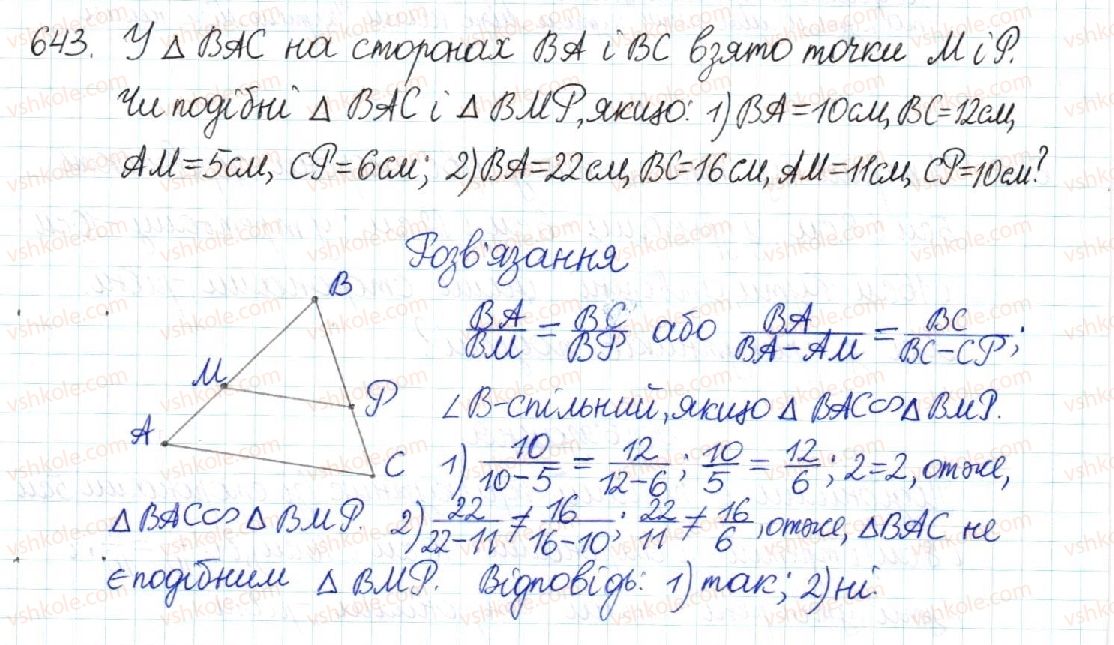 643. У △ BAC на сторонах BA і BC взято точки M і P.
Чи подібні △ BAC і △ BMP, якщо: 1) BA=10см, BC=12см,
AM=5см, CP=6см; 2) BA=22см, BC=16см, AM=11см, CP=10см?
Розв'язання
B
M
P
A
C
BA/BM = BC/BP або BA/(BA-AM) = BC/(BC-CP);
∠B-спільний, якщо △ BAC∽△ BMP.
1) 10/(10-5) = 12/(12-6); 10/5 = 12/6; 2=2, отже,
△BAC∽△BMP. 2) 22/(22-11) ≠ 16/(16-10); 22/11 ≠ 16/6, отже, △BAC не
є подібним △ BMP. Відповідь: 1) так; 2) ні.